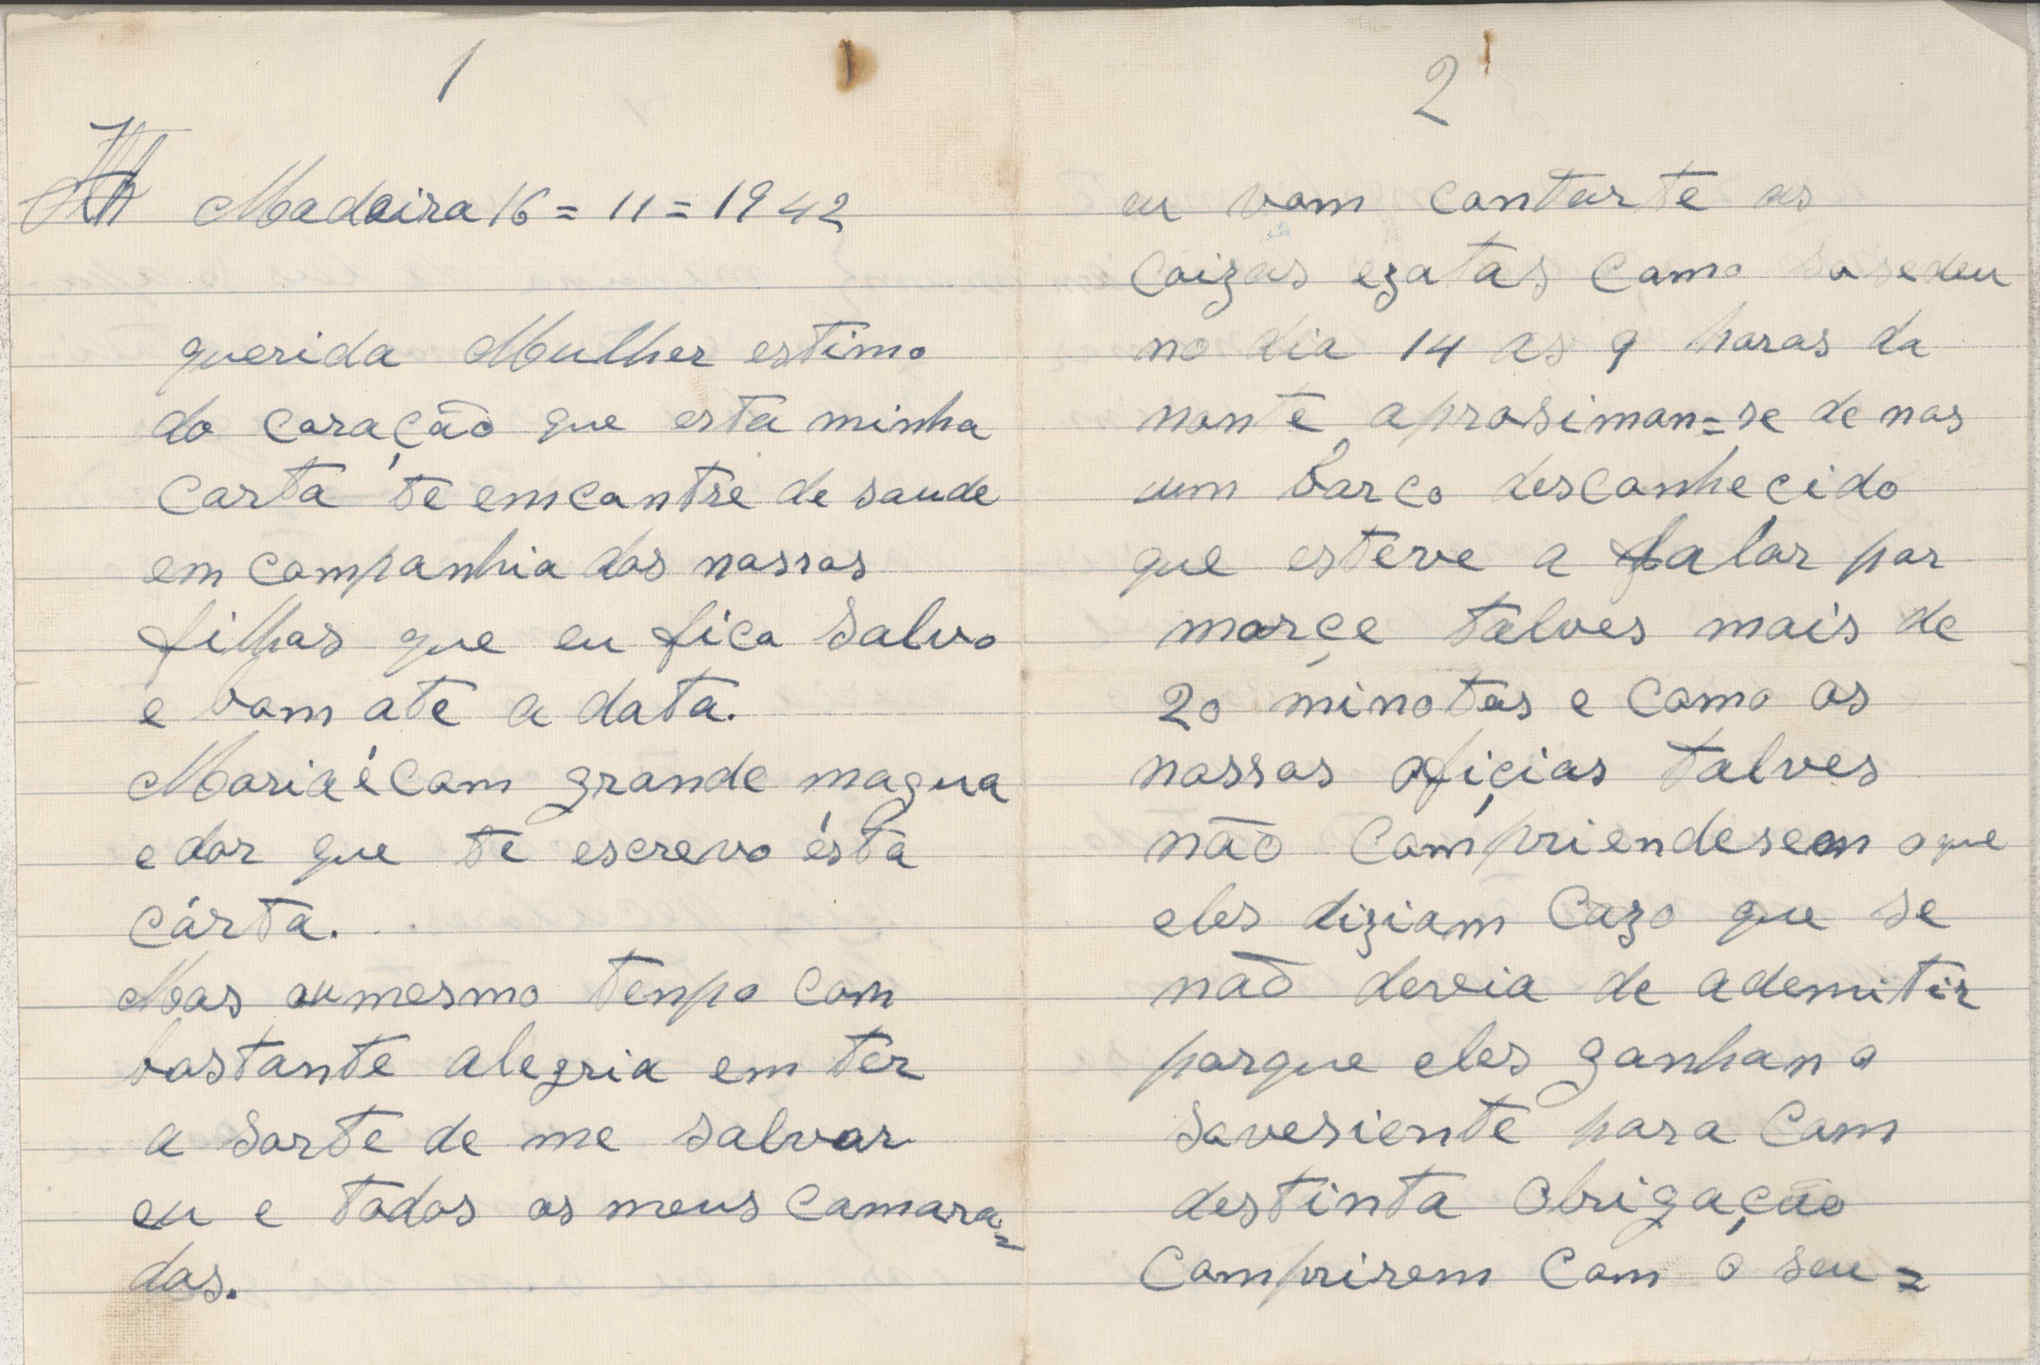 1
Madeira 16 = 11 = 1942
querida Mulher estimo
do coração que esta minha
carta te emcontre de saude
em companhia dos nossos
filhos que eu fico salvo
e bom ate a data.
Maria é com grande magua
e dor que te escrevo ésta
cárta.
Mas au mesmo tenpo com
bastante alegria em ter
a sorte de me salvar
eu e todos os meus camara=
das.
2
eu vom contarte as
coizas ezatas como sosedeu
no dia 14 as 9 horas da
nonte aprosimon=se de nos
um barco desconhecido
que esteve a falar por
morçe talves mais de
20 minotos e como os
nossos ofiçias talves
não compriendesem o que
eles diziam cazo que se
não devia de ademitir
porque eles ganhan o
sovesiente para com
destinta obrigação
comprirem com o seu =